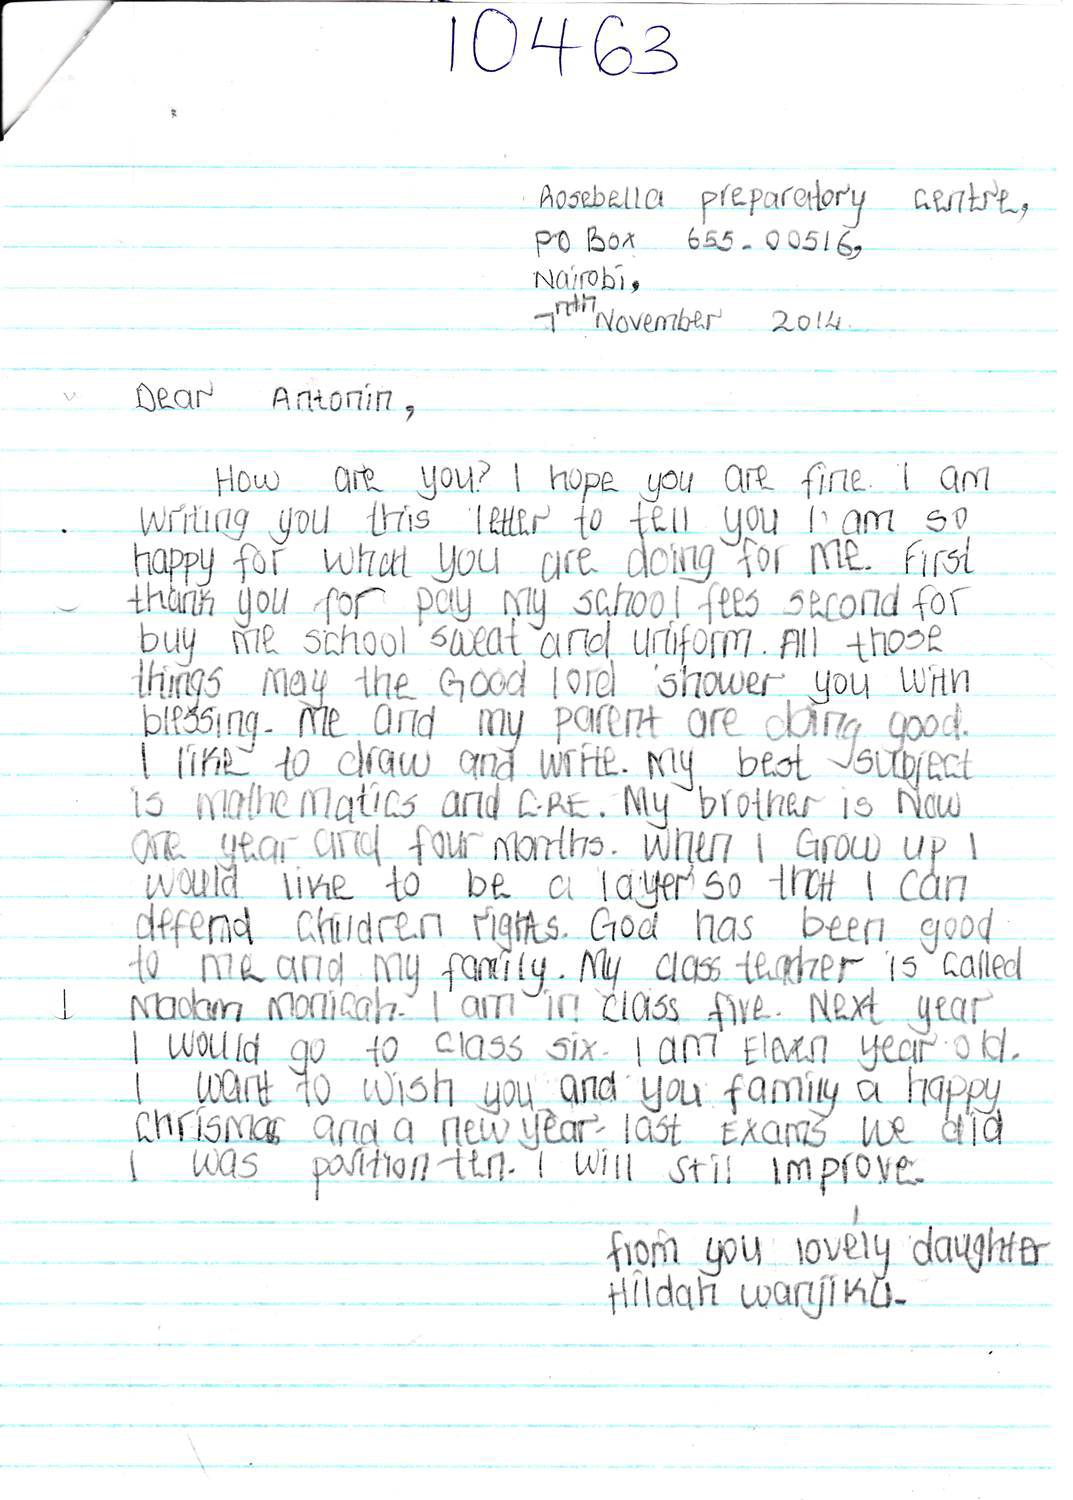 10463
Rosebella preparatory centre,
PO Box 655-00516,
Nairobi,
7nth November 2014.
Dear Antonin,
How are you? I hope you are fine. I am
writing you this letter to tell you I am so
happy for what you are doing for me. First
thank you for pay my school fees second for
buy me school sweat and uniform. All those
things may the Good lord shower you with
blessing. Me and my parent are doing good.
I like to draw and write. My best subject
is mathematics and C.RE. My brother is Now
one year and four months. When I Grow up I
would like to be a layer so that I can
deffend children rights. God has been good
to me and my family. My class teacher is called
Madam Monicah. I am in class five. Next year
I would go to class six. I am Eleven year old.
I want to wish you and you family a happy
chrismas and a new year. last Exams we did
I was position ten. I will still improve.
from you lovely daughter
Hildah wanjiku.